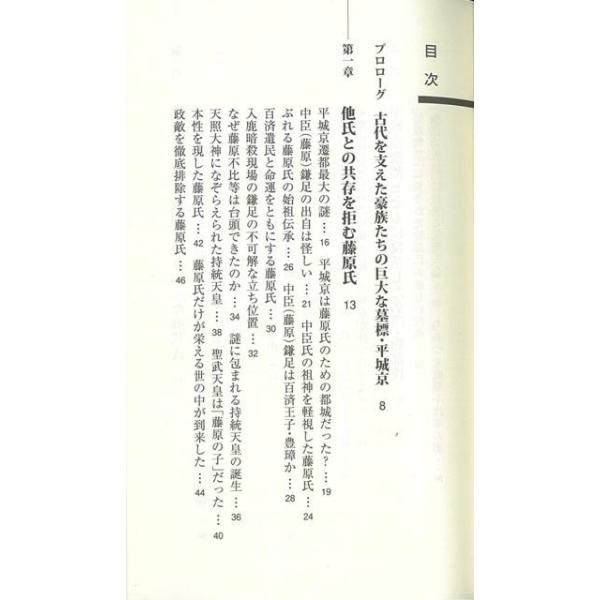 目次
プロローグ 古代を支えた豪族たちの巨大な墓標・平城京 8
第一章 他氏との共存を拒む藤原氏 13
平城京遷都最大の謎…16 平城京は藤原氏のための都城だった?…19
中臣(藤原)鎌足の出自は怪しい…21 中臣氏の祖神を軽視した藤原氏…24
ぶれる藤原氏の始祖伝承…26 中臣(藤原)鎌足は百済王子・豊璋か…28
百済遺民と命運をともにする藤原氏…30
入鹿暗殺現場の鎌足の不可解な立ち位置…32
なぜ藤原不比等は台頭できたのか…34 謎に包まれる持統天皇の誕生…36
天照大神になぞらえられた持統天皇…38 聖武天皇は「藤原の子」だった…40
本性を現した藤原氏…42 藤原氏だけが栄える世の中が到来した…44
政敵を徹底排除する藤原氏…46